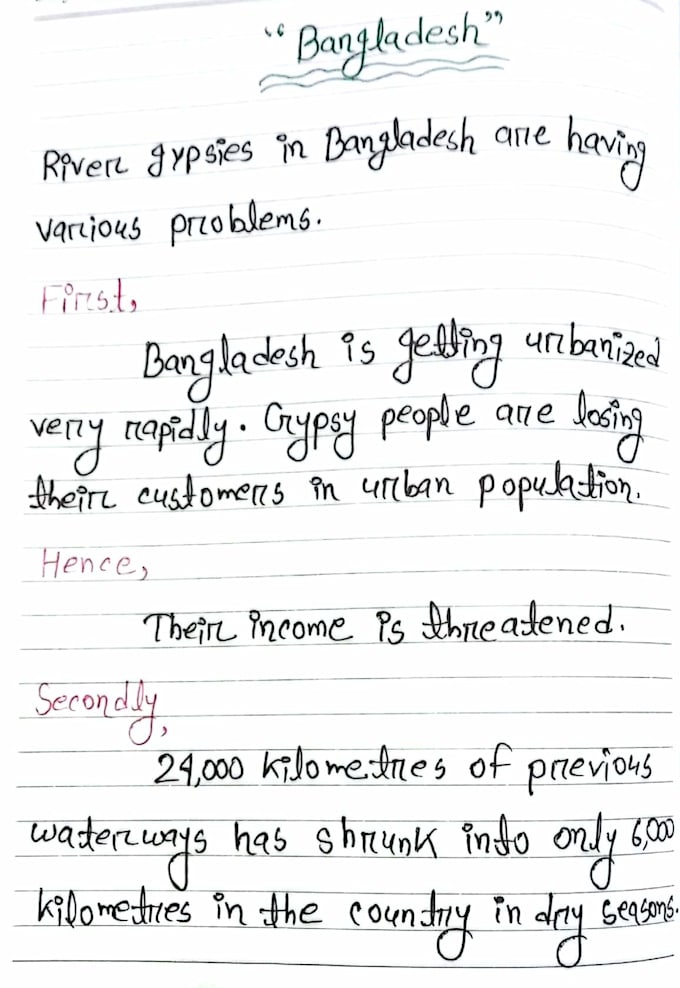 "Bangladesh"
River gypsies in Bangladesh are having
various problems.
First,
Bangladesh is getting urbanized
very rapidly. Gypsy people are losing
their customers in urban population.
Hence,
Their income is threatened.
Secondly,
24,000 kilometres of previous
waterways has shrunk into only 6,000
kilometres in the country in dry seasons.